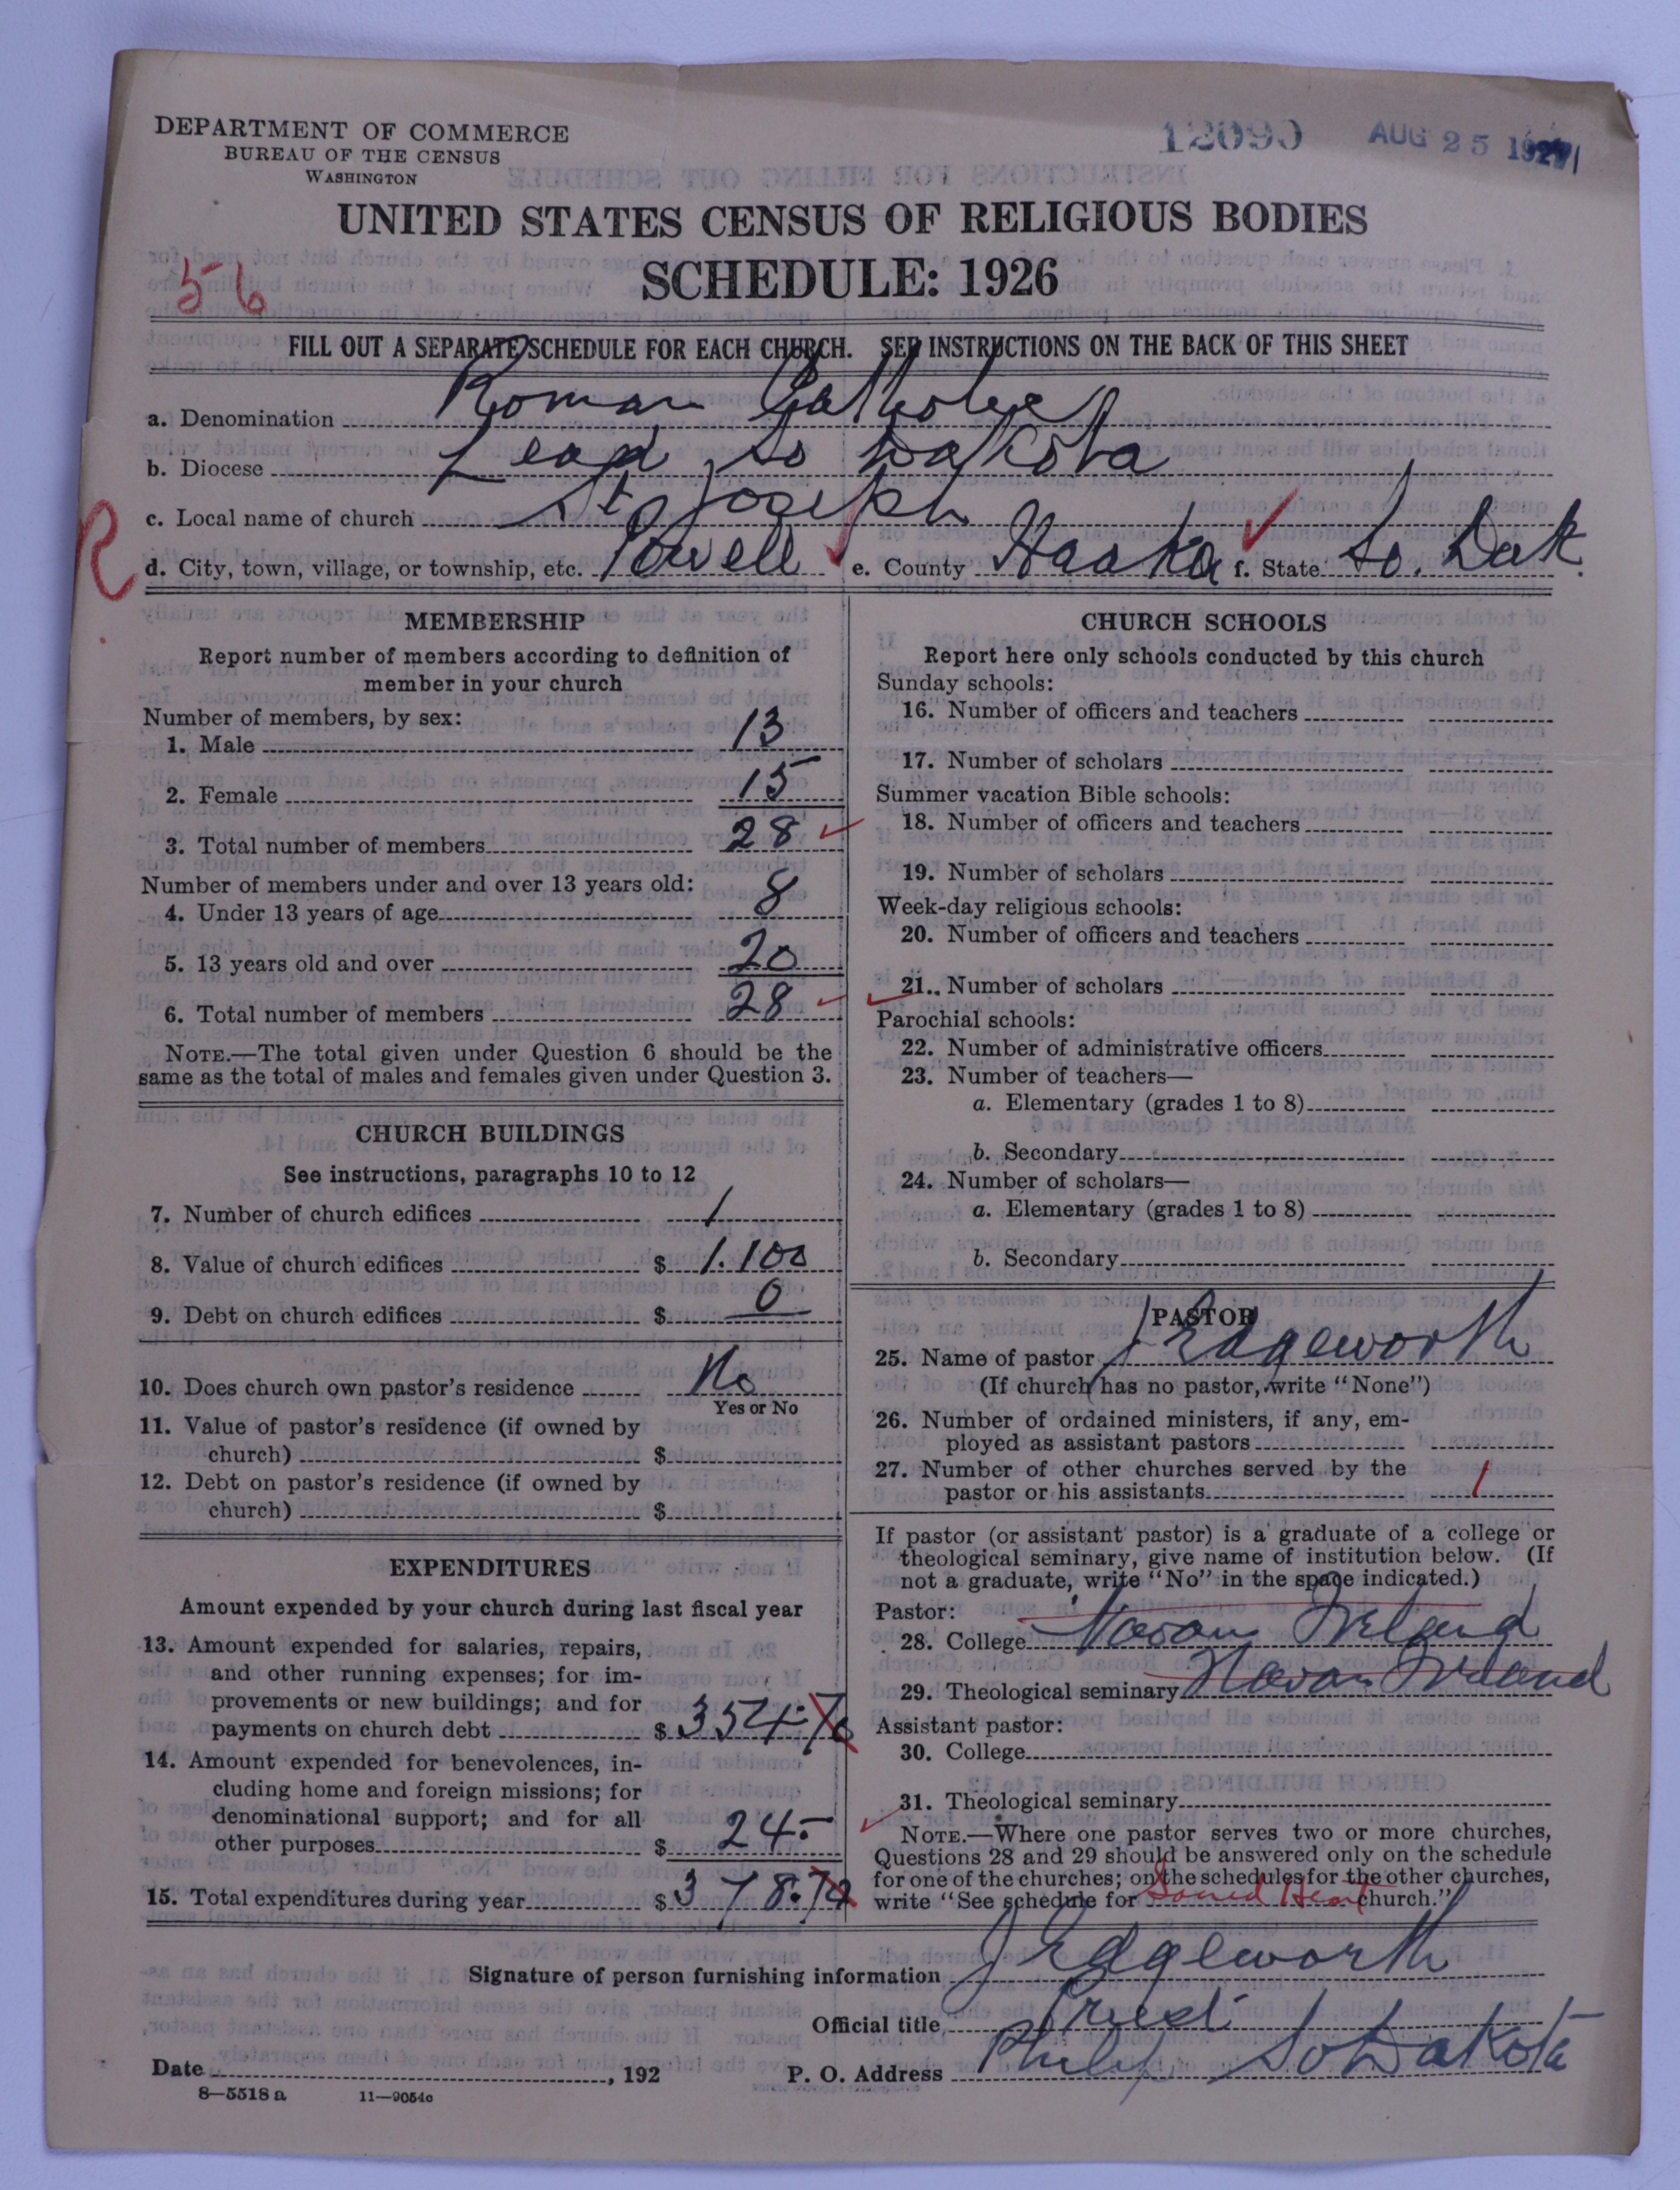 DEPARTMENT OF COMMERCE
BUREAU OF THE CENSUS
WASHINGTON
12090 AUG 25 1927
UNITED STATES CENSUS OF RELIGIOUS BODIES
SCHEDULE: 1926
56
FILL OUT A SEPARATE SCHEDULE FOR EACH CHURCH. SEE INSTRUCTIONS ON THE BACK OF THIS SHEET
a. Denomination Roman Catholic
b. Diocese Lead, So Dakota
c. Local name of church St Joseph
R
d. City, town, village, or township, etc. Powell e. County Haakon f. State So. Dak.
MEMBERSHIP
Report number of members according to definition of
member in your church
Number of members, by sex:
1. Male 13
2. Female 15
3. Total number of members 28
Number of members under and over 13 years old:
4. Under 13 years of age 8
5. 13 years old and over 20
6. Total number of members 28
NOTE.—The total given under Question 6 should be the
same as the total of males and females given under Question 3.
CHURCH BUILDINGS
See instructions, paragraphs 10 to 12
7. Number of church edifices 1
8. Value of church edifices $ 1.100
9. Debt on church edifices $ 0
10. Does church own pastor's residence No
Yes or No
11. Value of pastor's residence (if owned by
church) $
12. Debt on pastor's residence (if owned by
church) $
EXPENDITURES
Amount expended by your church during last fiscal year
13. Amount expended for salaries, repairs,
and other running expenses; for im-
provements or new buildings; and for
payments on church debt $ 354.70
14. Amount expended for benevolences, in-
cluding home and foreign missions; for
denominational support; and for all
other purposes $ 24.-
15. Total expenditures during year $ 378.70
CHURCH SCHOOLS
Report here only schools conducted by this church
Sunday schools:
16. Number of officers and teachers
17. Number of scholars
Summer vacation Bible schools:
18. Number of officers and teachers
19. Number of scholars
Week-day religious schools:
20. Number of officers and teachers
21. Number of scholars
Parochial schools:
22. Number of administrative officers
23. Number of teachers—
a. Elementary (grades 1 to 8)
b. Secondary
24. Number of scholars—
a. Elementary (grades 1 to 8)
b. Secondary
PASTOR
25. Name of pastor J Edgeworth
(If church has no pastor, write "None")
26. Number of ordained ministers, if any, em-
ployed as assistant pastors
27. Number of other churches served by the
pastor or his assistants 1
If pastor (or assistant pastor) is a graduate of a college or
theological seminary, give name of institution below. (If
not a graduate, write "No" in the space indicated.)
Pastor:
28. College Navan Ireland
29. Theological seminary Navan Ireland
Assistant pastor:
30. College
31. Theological seminary
NOTE.—Where one pastor serves two or more churches,
Questions 28 and 29 should be answered only on the schedule
for one of the churches; on the schedules for the other churches,
write "See schedule for Sacred Heart church."
Signature of person furnishing information J Edgeworth
Official title Priest
Date , 192 P. O. Address Philip So Dakota
8—5518 a 11—9054c